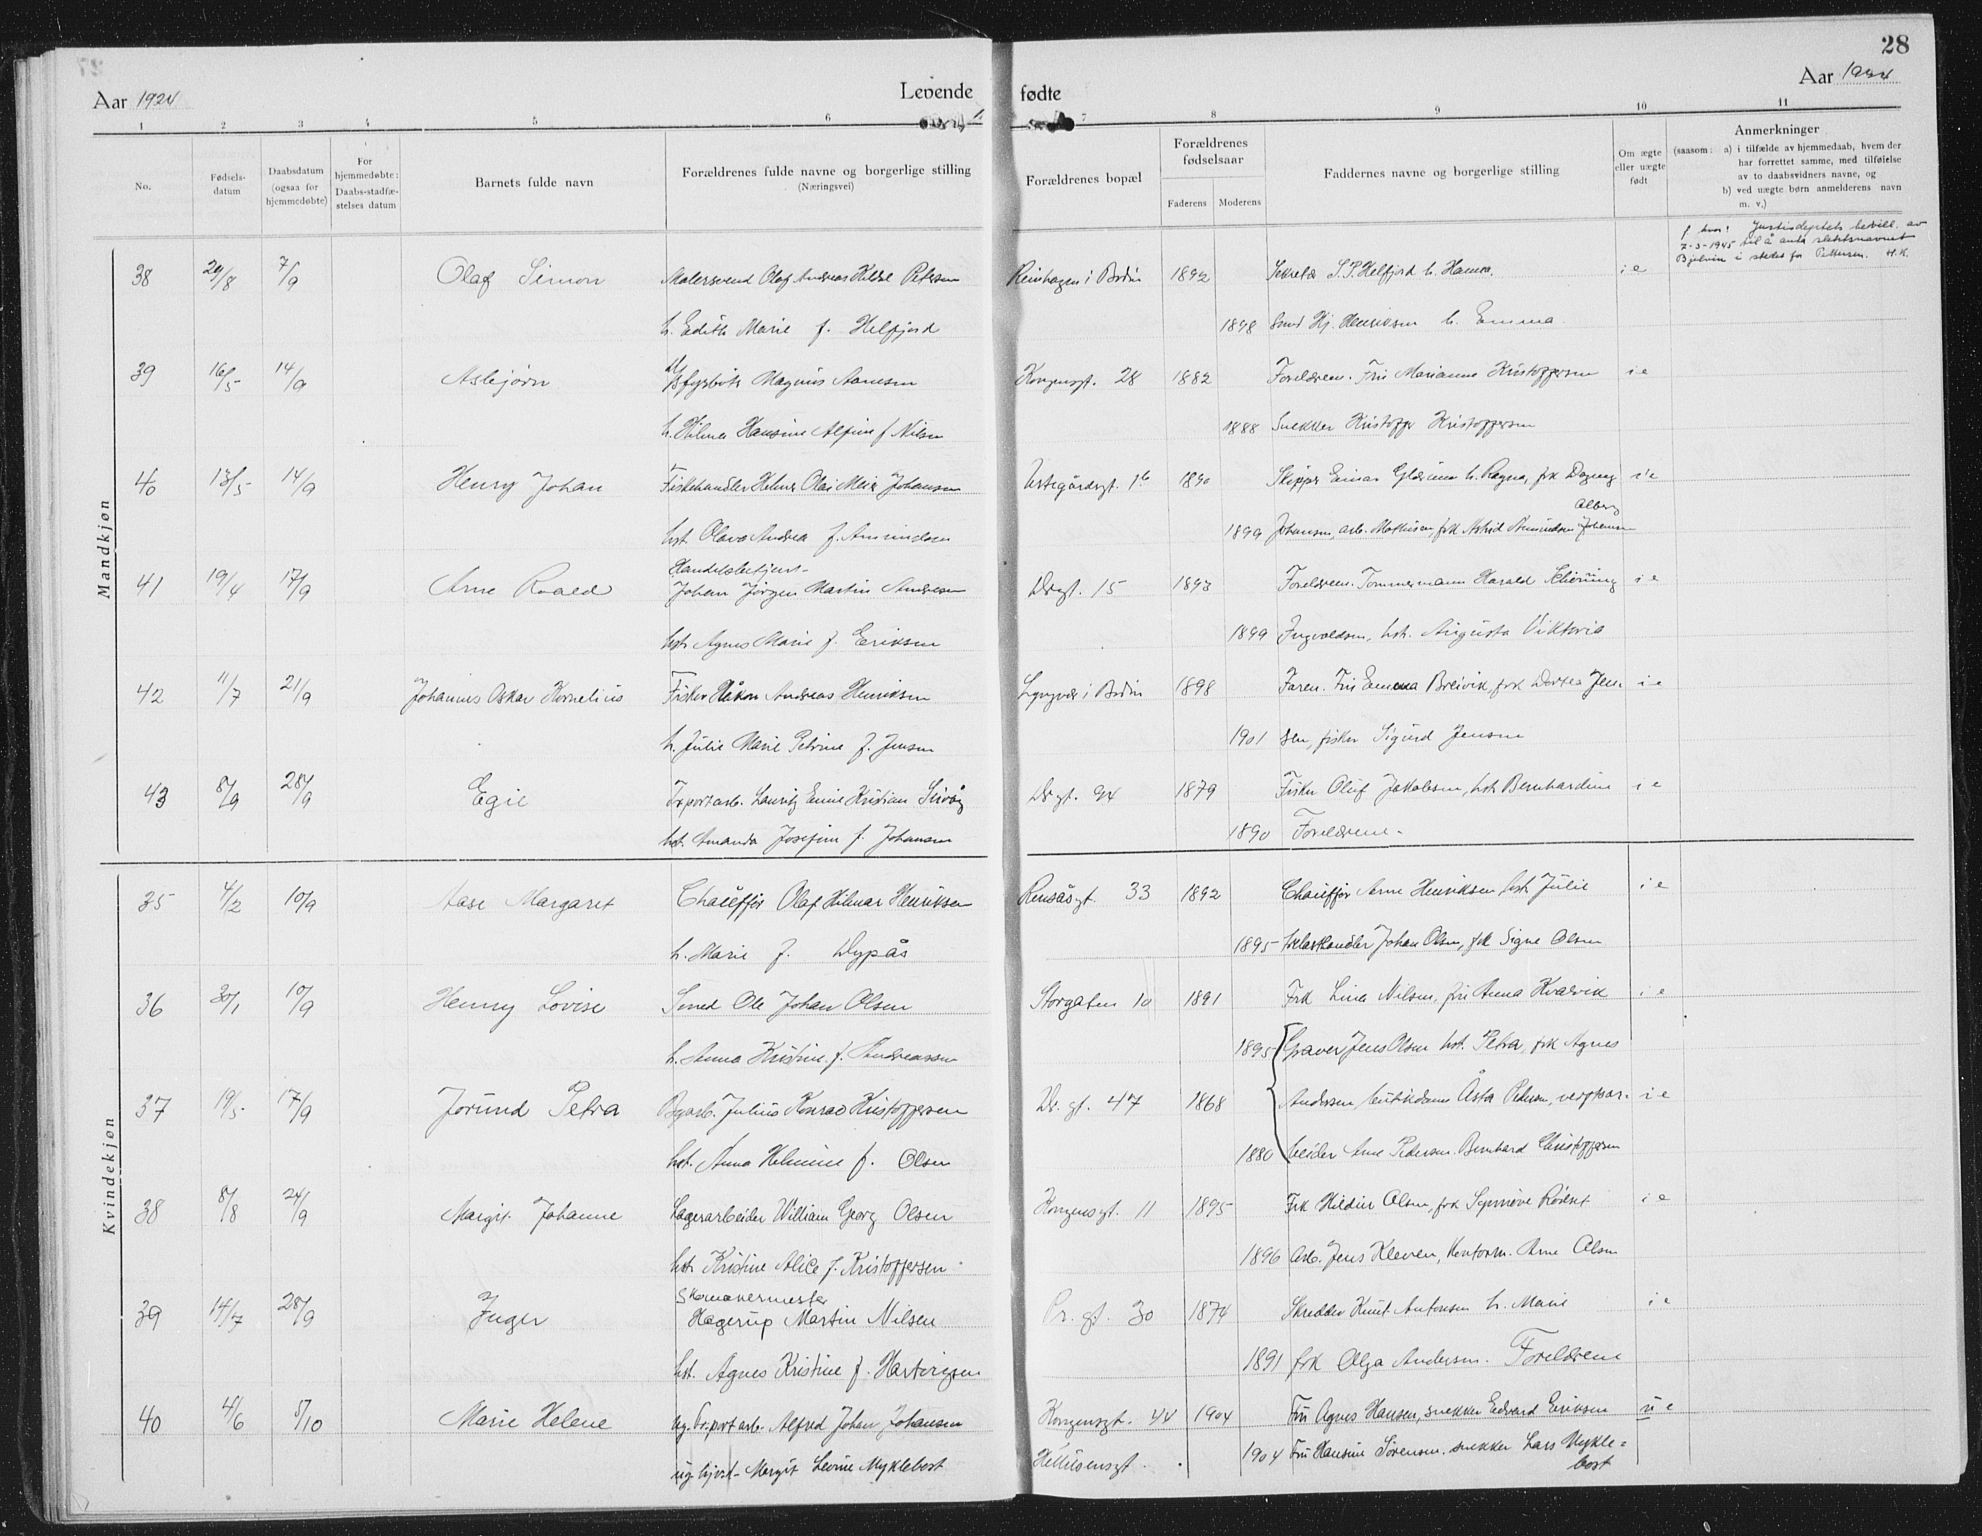 28
Aar 1924
Levende
fødte
Aar 1924
1 2 3 4 5 6 7 8 9 10 11
No.
Fødsels-
datum
Daabsdatum
(ogsaa for
hjemmedøbte)
For
hjemmedøbte:
Daabs-stadfæ-
stelses datum
Barnets fulde navn
Forældrenes fulde navne og borgerlige stilling
(Næringsvei)
Forældrenes bopæl
Forældrenes
fødselsaar
Faderens
Moderens
Faddernes navne og borgerlige stilling
Om ægte
eller uægte
født
Anmerkninger
(saasom: a) i tilfælde av hjemmedaab, hvem der
har forrettet samme, med tilføielse
av to daabsvidners navne, og
b) ved uægte børn anmelderens navn
m. v.)
Mandkjøn
7-3-1945 til å anta slektsnavnet
i stedet for Pettersen. H.K.
38 29/8 7/9 Olaf Simon Malersvend Olaf Andreas Petersen i Bodin 1892 S.P. Helfjord h. Hanna i e
h. Edith Marie f. Helfjord 1898 Hj. Henriksen h. Emma
39 16/5 14/9 Asbjørn Magnus Kongensgt. 28 1882 Foreldrene. Fru Marianne Kristoffersen i e
h. Hilma Hansine Alfine f Nilsen 1888 Snekker Kristoffer Kristoffersen
40 13/5 14/9 Henry Johan Fiskehandler Helmer Olai Meier Johansen 1b 1890 Skipper Einar h. Ragna, frk Dagny i e
Alberg
hst. Olava Andrea f. Amundsen 1899 Johansen, arb. Mathisen, frk Astrid Amundsen Johansen
Handelsbetjent
41 19/4 17/9 Arne Roald Johan Jörgen Martin Andresen Drgt. 15 1893 Foreldrene. Tømmermann Harald i e
hst. Agnes Marie f. Eriksen 1899 Ingvaldsen, hst. Augusta Viktoria
42 11/7 21/9 Johannes Oskar Kornelius Fisker Håkon Andreas Henriksen i Bodin 1898 Faren. Fru Emma Breivik, frk Dortea Jen- i e
h. Julie Marie Petrine f. Jensen 1901 sen, fisker Sigurd Jensen
43 8/9 28/9 Egil Tr.portarb. Lauritz Emil Kristian Drgt. 94 1879 Fisker Oluf Jakobsen, hst. Bernhardine i e
hst. Amanda Josefine f. Johansen 1890 Foreldrene.
Kvindekjøn
35 4/2 10/9 Aase Margaret Chauffør Olaf Hilmar Henriksen Rensåsgt. 33 1892 Chauffør Arne Henriksen, hst. Julie i e
h. Marie f. Dypås 1895 Johan Olsen, frk Signe Olsen
36 30/1 10/9 Henny Lovise Smed Ole Johan Olsen Storgaten 10 1891 Frk Lina Nilsen, fru Anna Kvalvik i e
h. Anna Kristine f. Andreassen 1895 Graver Jens Olsen hst. Petra, frk Agnes
37 19/5 17/9 Jorund Petra Byarb. Julius Konrad Kristoffersen Dr. gt. 47 1868 Andersen, butikdame Åsta Pedersen, verftsar- i e
hst. Anna Helmine f. Olsen 1880 beider Arne Pedersen. Bernhard Christoffersen
38 8/8 24/9 Margit Johanne Lagerarbeider William Georg Olsen Kongensgt. 11 1895 Frk Hildur Olsen, frk Synnøve i e
hst. Kristine Alice f. Kristoffersen 1896 Arb. Jens Kleven, kontorm. Arne Olsen
Skomakermester
39 14/7 28/9 Inger Hagerup Martin Nilsen Pr. gt. 30 1874 Skredder Knut Antonsen h. Marie i e
hst. Agnes Kristine f. Hartvigsen 1891 frk Olga Andersen. Foreldrene
40 4/6 5/10 Marie Helene ug. tr.portarb. Alfred Johan Johansen Kongensgt. 44 1904 Fru Agnes Hansen, snekker Edvard Eriksen u e
ug. Margit Levine Myklebost 1904 Fru Hansine Sørensen. snekker Lars Mykle=
bost